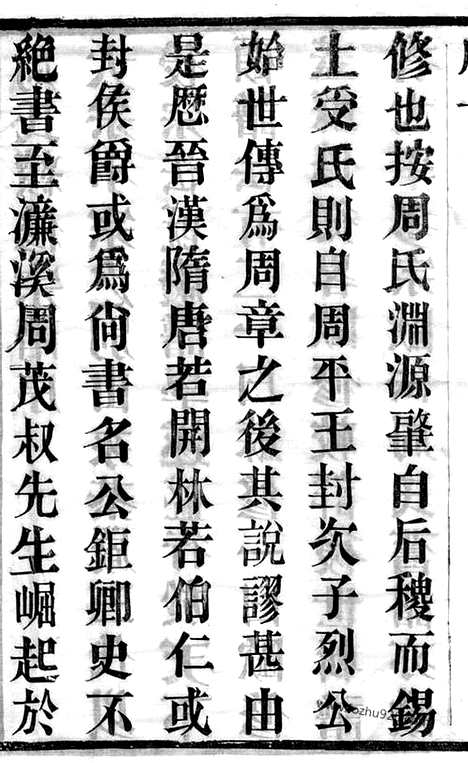 修也按周氏淵源肇自后稷而錫
土受氏則自周平王封次子烈公
始世傳爲周章之後其說謬甚由
是歷晉漢隋唐若開林若伯仁或
封侯爵或爲尙書名公鉅卿史不
絕書至濂溪周茂叔先生崛起於